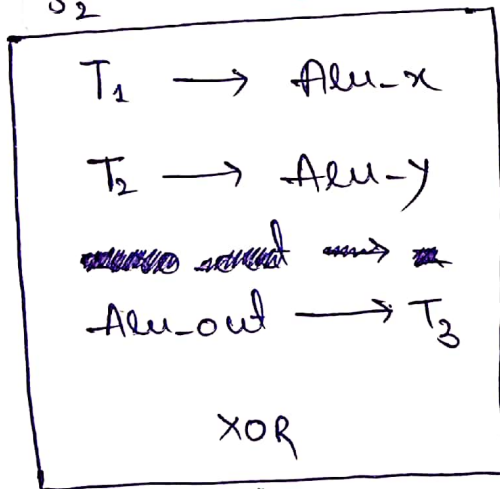 S2
T1 → Alu-x
T2 → Alu-y
Alu-out → T3
XOR